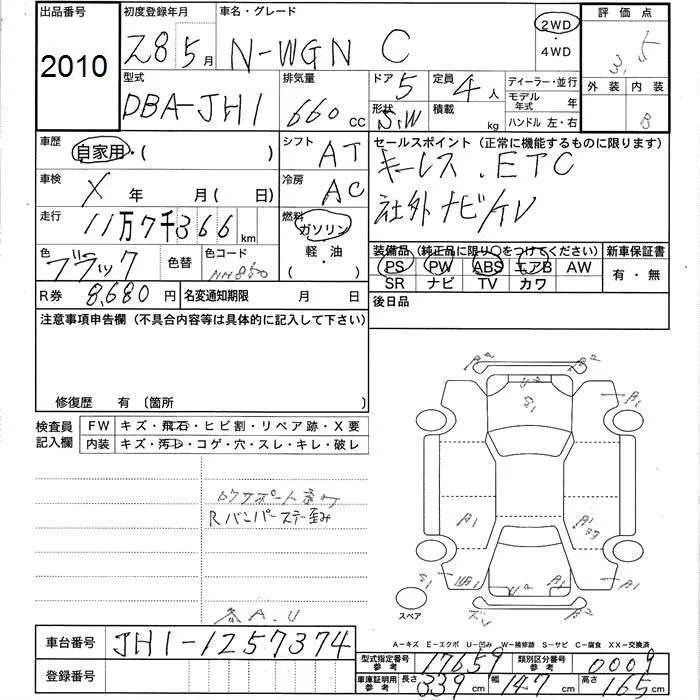 出品番号 2010
初度登録年月 28 5月
車名・グレード N-WGN C
2WD
・4WD
評価点 3.5
外装 内装 B
型式 DBA-JH1
排気量 660 cc
ドア 5
定員 4人
形状 S.W
積載 kg
ディーラー・並行
モデル年式 年
ハンドル 左・右
車歴 自家用・( )
シフト AT
車検 X 年 月(日)
冷房 AC
セールスポイント(正常に機能するものに限ります)
キーレス.ETC
社外ナビ/TV
走行 11万7千366km
燃料 ガソリン・軽・油・( )
色 ブラック
色替
色コード
装備品(純正品に限り○をつけてください)
PS PW ABS エアB AW
SR ナビ TV カワ
新車保証書 有・無
R券 8,680円
名変通知期限 月 日
後日品
注意事項申告欄(不具合内容等は具体的に記入して下さい)
修復歴 有〔箇所
検査員記入欄
FW キズ・飛石・ヒビ割・リペア跡・X要
内装 キズ・汚レ・コゲ・穴・スレ・キレ・破レ
Rバンパーステー歪み
A.U
A2 A2
U2
S1
A1
A1
A1
A1
S1
A1
U2
A1
スペア
車台番号 JH1-1257374
登録番号
A-キズ E-エクボ U-凹み W-補修跡 S-サビ C-腐食 XX-交換済
型式指定番号参考 17659
類別区分番号参考 0009
車庫証明用参考 長さ 339cm 幅 147cm 高さ 165cm